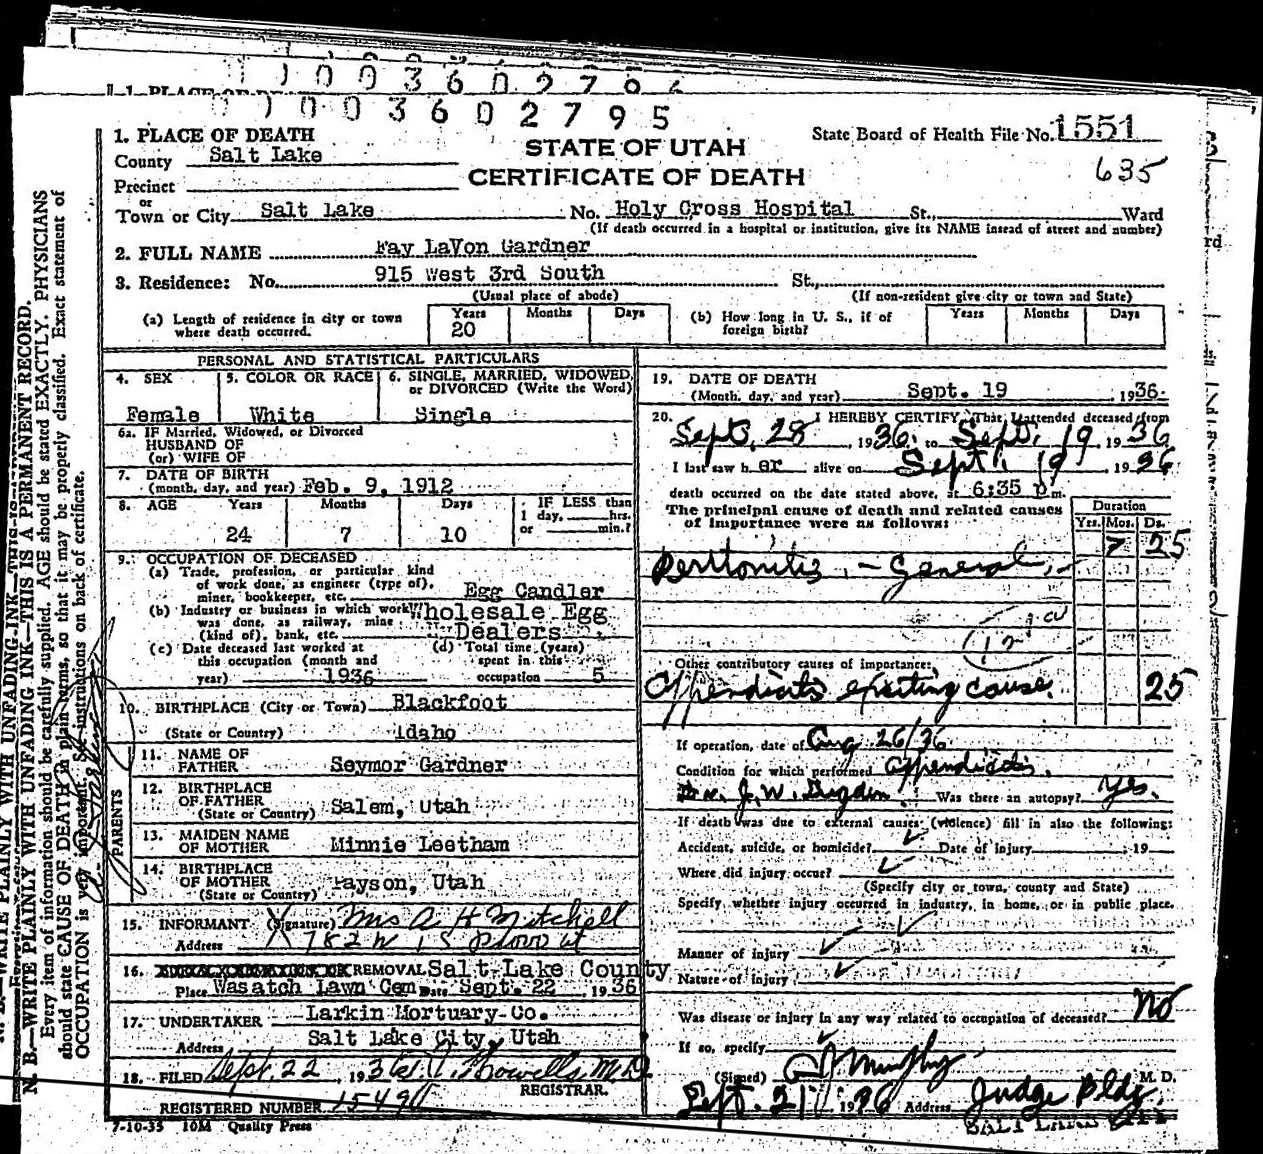 1 0 0 3 6 0 2 7 9
1. PLACE OF DEATH
1 0 0 3 6 0 2 7 9 5
1. PLACE OF DEATH
County Salt Lake
Precinct
or
Town or City Salt Lake No. Holy Cross Hospital St., Ward
(If death occurred in a hospital or institution, give its NAME instead of street and number)
STATE OF UTAH
CERTIFICATE OF DEATH
State Board of Health File No. 1551
635
2. FULL NAME Fay LaVon Gardner
3. Residence: No. 915 West 3rd South St.,
(Usual place of abode) (If non-resident give city or town and State)
(a) Length of residence in city or town where death occurred. Years 20 Months Days
(b) How long in U. S., if of foreign birth? Years Months Days
PERSONAL AND STATISTICAL PARTICULARS
4. SEX Female
5. COLOR OR RACE White
6. SINGLE, MARRIED, WIDOWED, or DIVORCED (Write the Word) Single
6a. IF Married, Widowed, or Divorced
HUSBAND OF
(or) WIFE OF
7. DATE OF BIRTH
(month, day, and year) Feb. 9, 1912
8. AGE Years 24 Months 7 Days 10 IF LESS than 1 day, hrs. or min.?
9. OCCUPATION OF DECEASED
(a) Trade, profession, or particular kind
of work done, as engineer (type of),
miner, bookkeeper, etc. Egg Candler
(b) Industry or business in which work Wholesale Egg
was done, as railway, mine Dealers
(kind of), bank, etc.
(c) Date deceased last worked at this occupation (month and year) 1936
(d) Total time (years) spent in this occupation 5
10. BIRTHPLACE (City or Town) Blackfoot
(State or Country) Idaho
PARENTS
11. NAME OF FATHER Seymor Gardner
12. BIRTHPLACE OF FATHER (State or Country) Salem, Utah
13. MAIDEN NAME OF MOTHER Minnie Leetham
14. BIRTHPLACE OF MOTHER (State or Country) Payson, Utah
15. INFORMANT (Signature) Mrs A H Mitchell
Address
16. REMOVAL Salt Lake County
Place Wasatch Lawn Cem. Date Sept. 22, 1936
17. UNDERTAKER Larkin Mortuary Co.
Address Salt Lake City, Utah
18. FILED Sept. 22, 1936 M.D.
REGISTRAR.
REGISTERED NUMBER
7-10-35 10M Quality Press
19. DATE OF DEATH
(Month, day, and year) Sept. 19 1936.
20. I HEREBY CERTIFY, That I attended deceased from
Sept. 28, 1936, to Sept. 19 1936
I last saw her alive on Sept. 19, 1936
death occurred on the date stated above, at 6:35 p.m.
The principal cause of death and related causes
of importance were as follows:
Duration
Yrs. Mos. Ds.
25
Peritonitis, - General, -
Other contributory causes of importance:
Appendicitis exciting cause. 25
If operation, date of Aug 26/36
Condition for which performed Appendicitis.
Dr. J. W. Was there an autopsy? Yes.
If death was due to external causes (violence) fill in also the following:
Accident, suicide, or homicide? Date of injury 19
Where did injury occur?
(Specify city or town, county and State)
Specify whether injury occurred in industry, in home, or in public place.
Manner of injury
Nature of injury
Was disease or injury in any way related to occupation of deceased? No
If so, specify
(Signed) Murphy M. D.
Sept. 21 1936 Address Judge Bldg.
SALT LAKE CITY
N. B.—WRITE PLAINLY WITH UNFADING INK—THIS IS A PERMANENT RECORD.
Every item of information should be carefully supplied. AGE should be stated EXACTLY. PHYSICIANS
should state CAUSE OF DEATH in plain terms, so that it may be properly classified. Exact statement of
OCCUPATION is very important. See instructions on back of certificate.